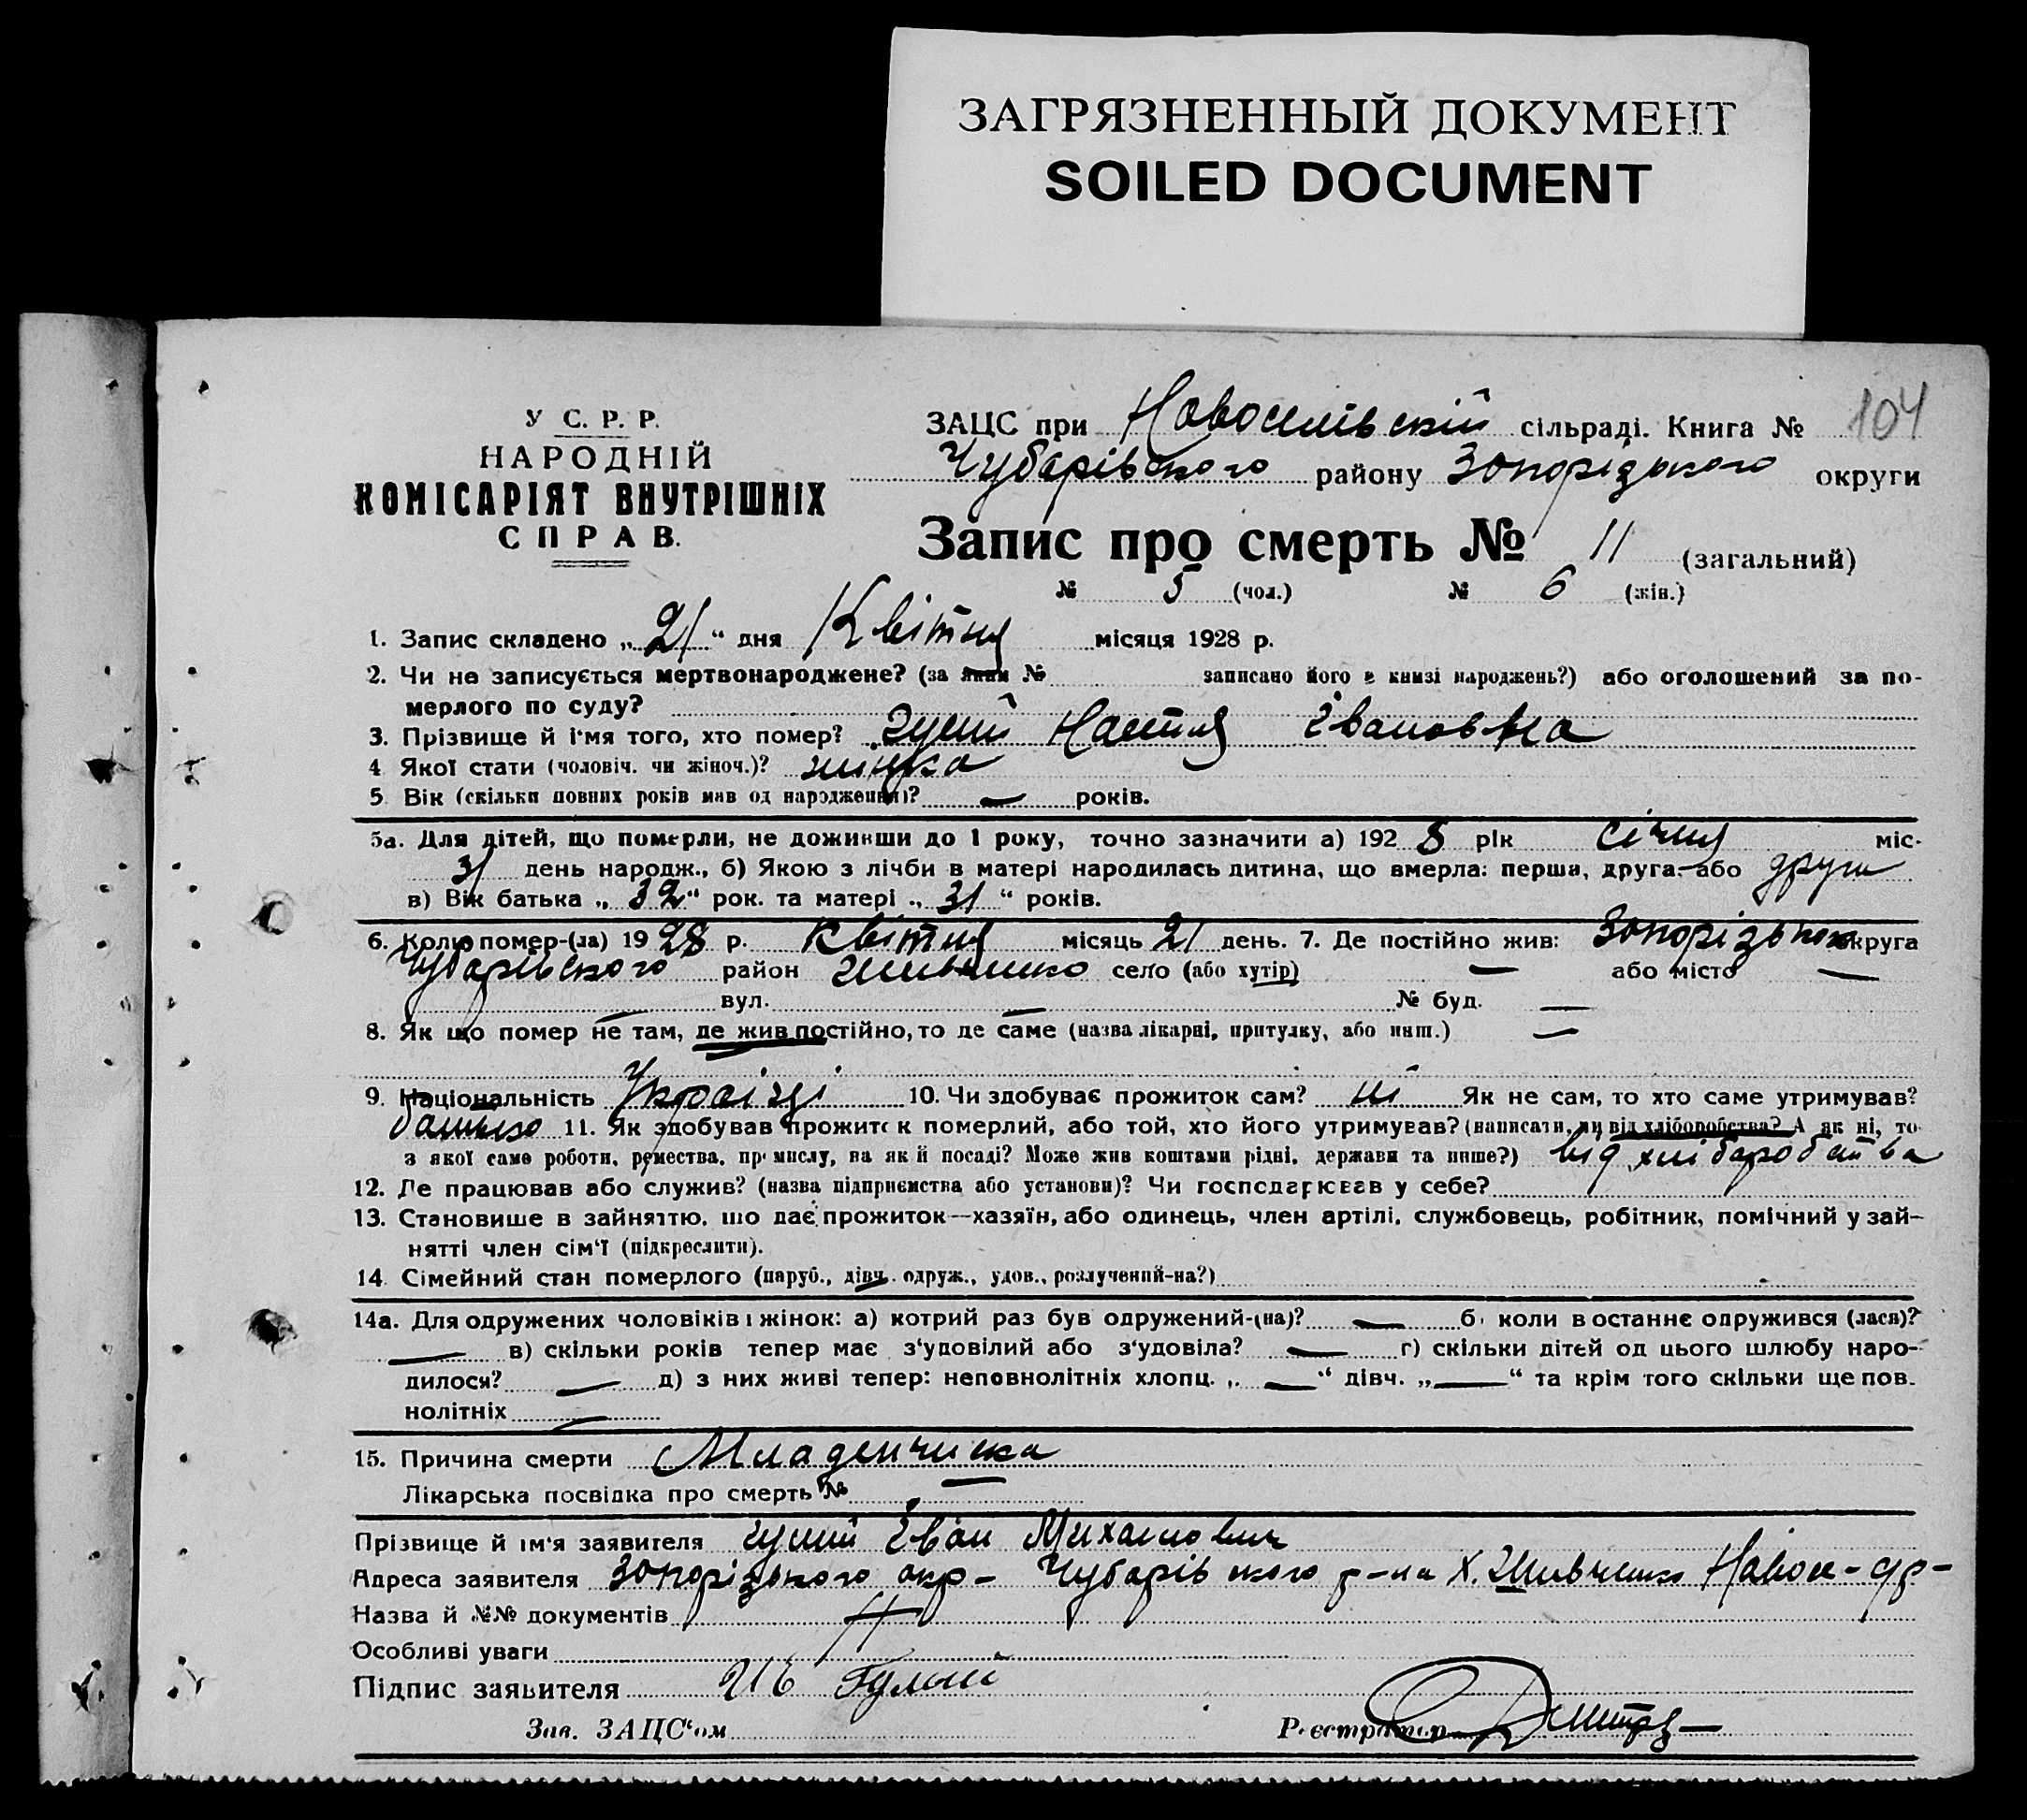 ЗАГРЯЗНЕННЫЙ ДОКУМЕНТ
SOILED DOCUMENT
У С. Р. Р.
НАРОДНІЙ
КОМІСАРІЯТ ВНУТРІШНІХ
СПРАВ.
ЗАЦС при Новоселівскій сільраді. Книга № 104
Чубарівського району Запорізького округи
Запис про смерть № 11 (загальний)
№ 5 (чол.) № 6 (жін.)
1. Запис складено „ 21 “ дня Квітня місяця 1928 р.
2. Чи не записується мертвонароджене? (за яким № записано його в книзі народжень?) або оголошений за по-
мерлого по суду?
3. Прізвище й і'мя того, хто помер? Гулий Настя Івановна
4 Якої стати (чоловіч. чи жіноч.)? жінка
5. Вік (скільки повних років мав од народження)? — років.
5а. Для дітей, що померли, не доживши до 1 року, точно зазначити а) 1928 рік січня міс-
31 день народж., б) Якою з лічби в матері народилась дитина, що вмерла: перша, друга, або друга
в) Вік батька „ 32 “ рок. та матері „ 31 “ років.
6. Колю помер-(ла) 1928 р. Квітня місяць 21 день. 7. Де постійно жив: Запорізького округа
Чубарівського район село (або хутір) — або місто —
вул. — № буд. —
8. Як що помер не там, де жив постійно, то де саме (назва лікарні, притулку, або инш.) —
9. Національність Україці 10. Чи здобуває прожиток сам? ні Як не сам, то хто саме утримував?
батько 11. Як здобував прожиток померлий, або той, хто його утримував? (написати, чи від хліборобства? А як ні, то
з якої саме роботи, ремества, промислу, на якій посаді? Може жив коштами рідні, держави та инше?) від хліборобства
12. Де працював або служив? (назва підприємства або установи)? Чи господарював у себе?
13. Становище в зайняттю, що дає прожиток—хазяїн, або одинець, член артілі, службовець, робітник, помічний у зай-
нятті член сім'ї (підкреслити).
14. Сімейний стан померлого (паруб., дівч. одруж., удов., розлучений-на?)
14а. Для одружених чоловіків і жінок: а) котрий раз був одружений-(на)? — б) коли в останнє одружився (лася)?
— в) скільки років тепер має з'удовілий або з'удовіла? — г) скільки дітей од цього шлюбу наро-
дилося? — д) з них живі тепер: неповнолітніх хлопц. „ — “ дівч. „ — “ та крім того скільки ще пов.
нолітніх —
15. Причина смерти Младенчиска
Лікарська посвідка про смерть № —
Прізвище й ім'я заявителя Гулий Іван Михайлович
Адреса заявителя Запорізького окр- Чубарівського р-на Х. Шивченко
Назва й №№ документів
Особливі уваги
Підпис заявителя Гулий
Зав. ЗАЦС'ом Реєстратор